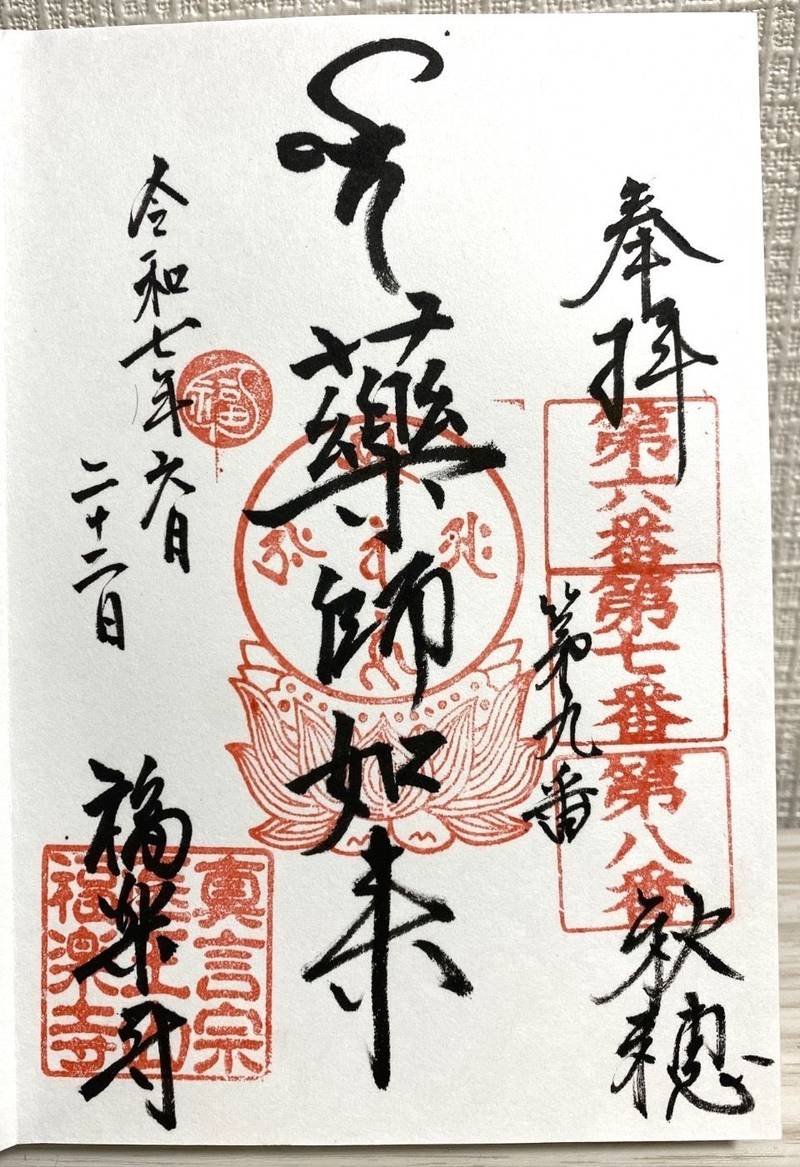 奉拝
第六番
第七番
第八番
第九番
秋穂
藥師如来
令和七年六月
二十二日
福
福楽寺
真言宗
福楽寺